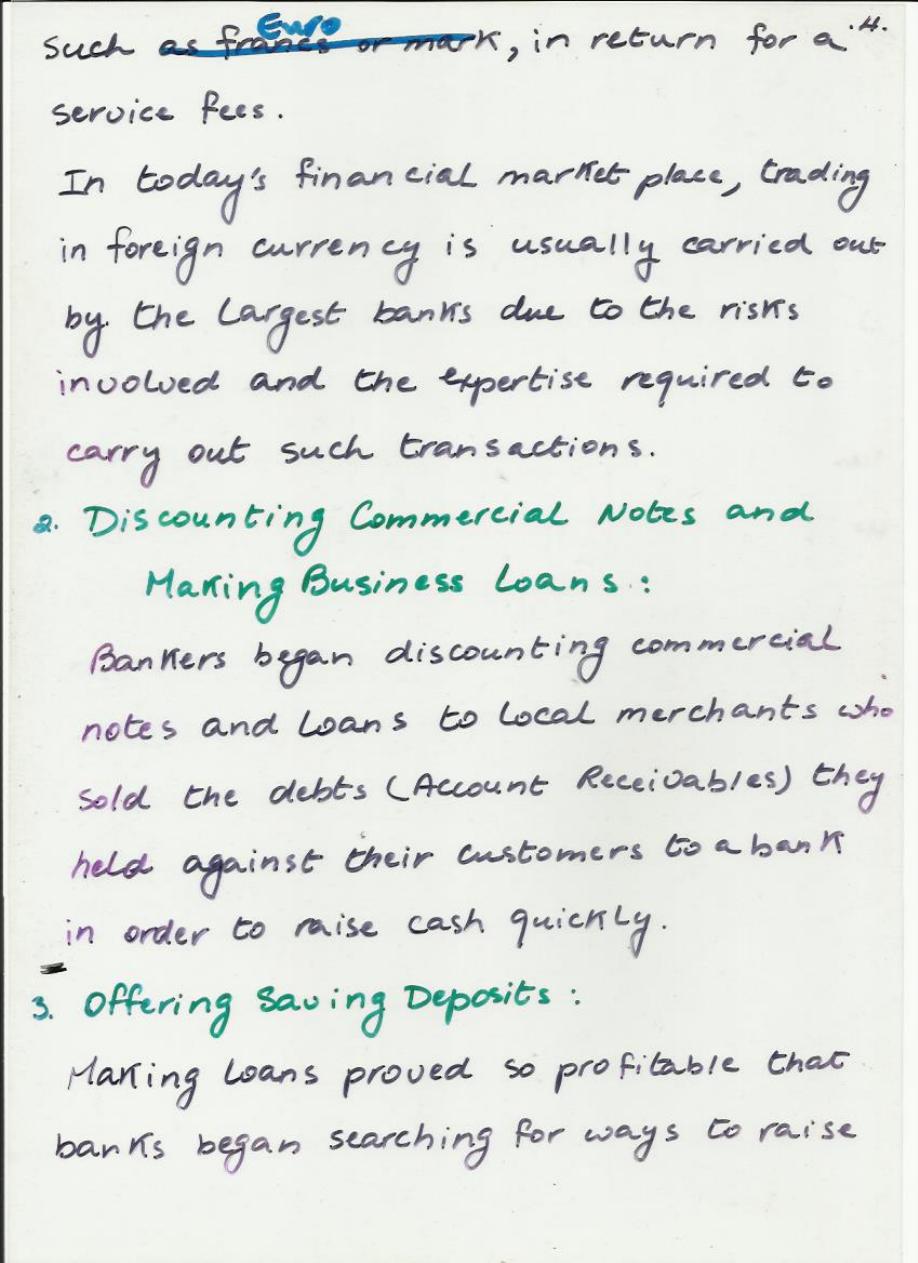 Euro
such as francs or mark, in return for a .4.
service fees.
In today's financial market place, trading
in foreign currency is usually carried out
by the largest banks due to the risks
involved and the expertise required to
carry out such transactions.
2. Discounting Commercial Notes and
Making Business Loans:
Bankers began discounting commercial
notes and loans to local merchants who
sold the debts (Account Receivables) they
held against their customers to a bank
in order to raise cash quickly.
3. Offering Saving Deposits:
Making loans proved so profitable that
banks began searching for ways to raise